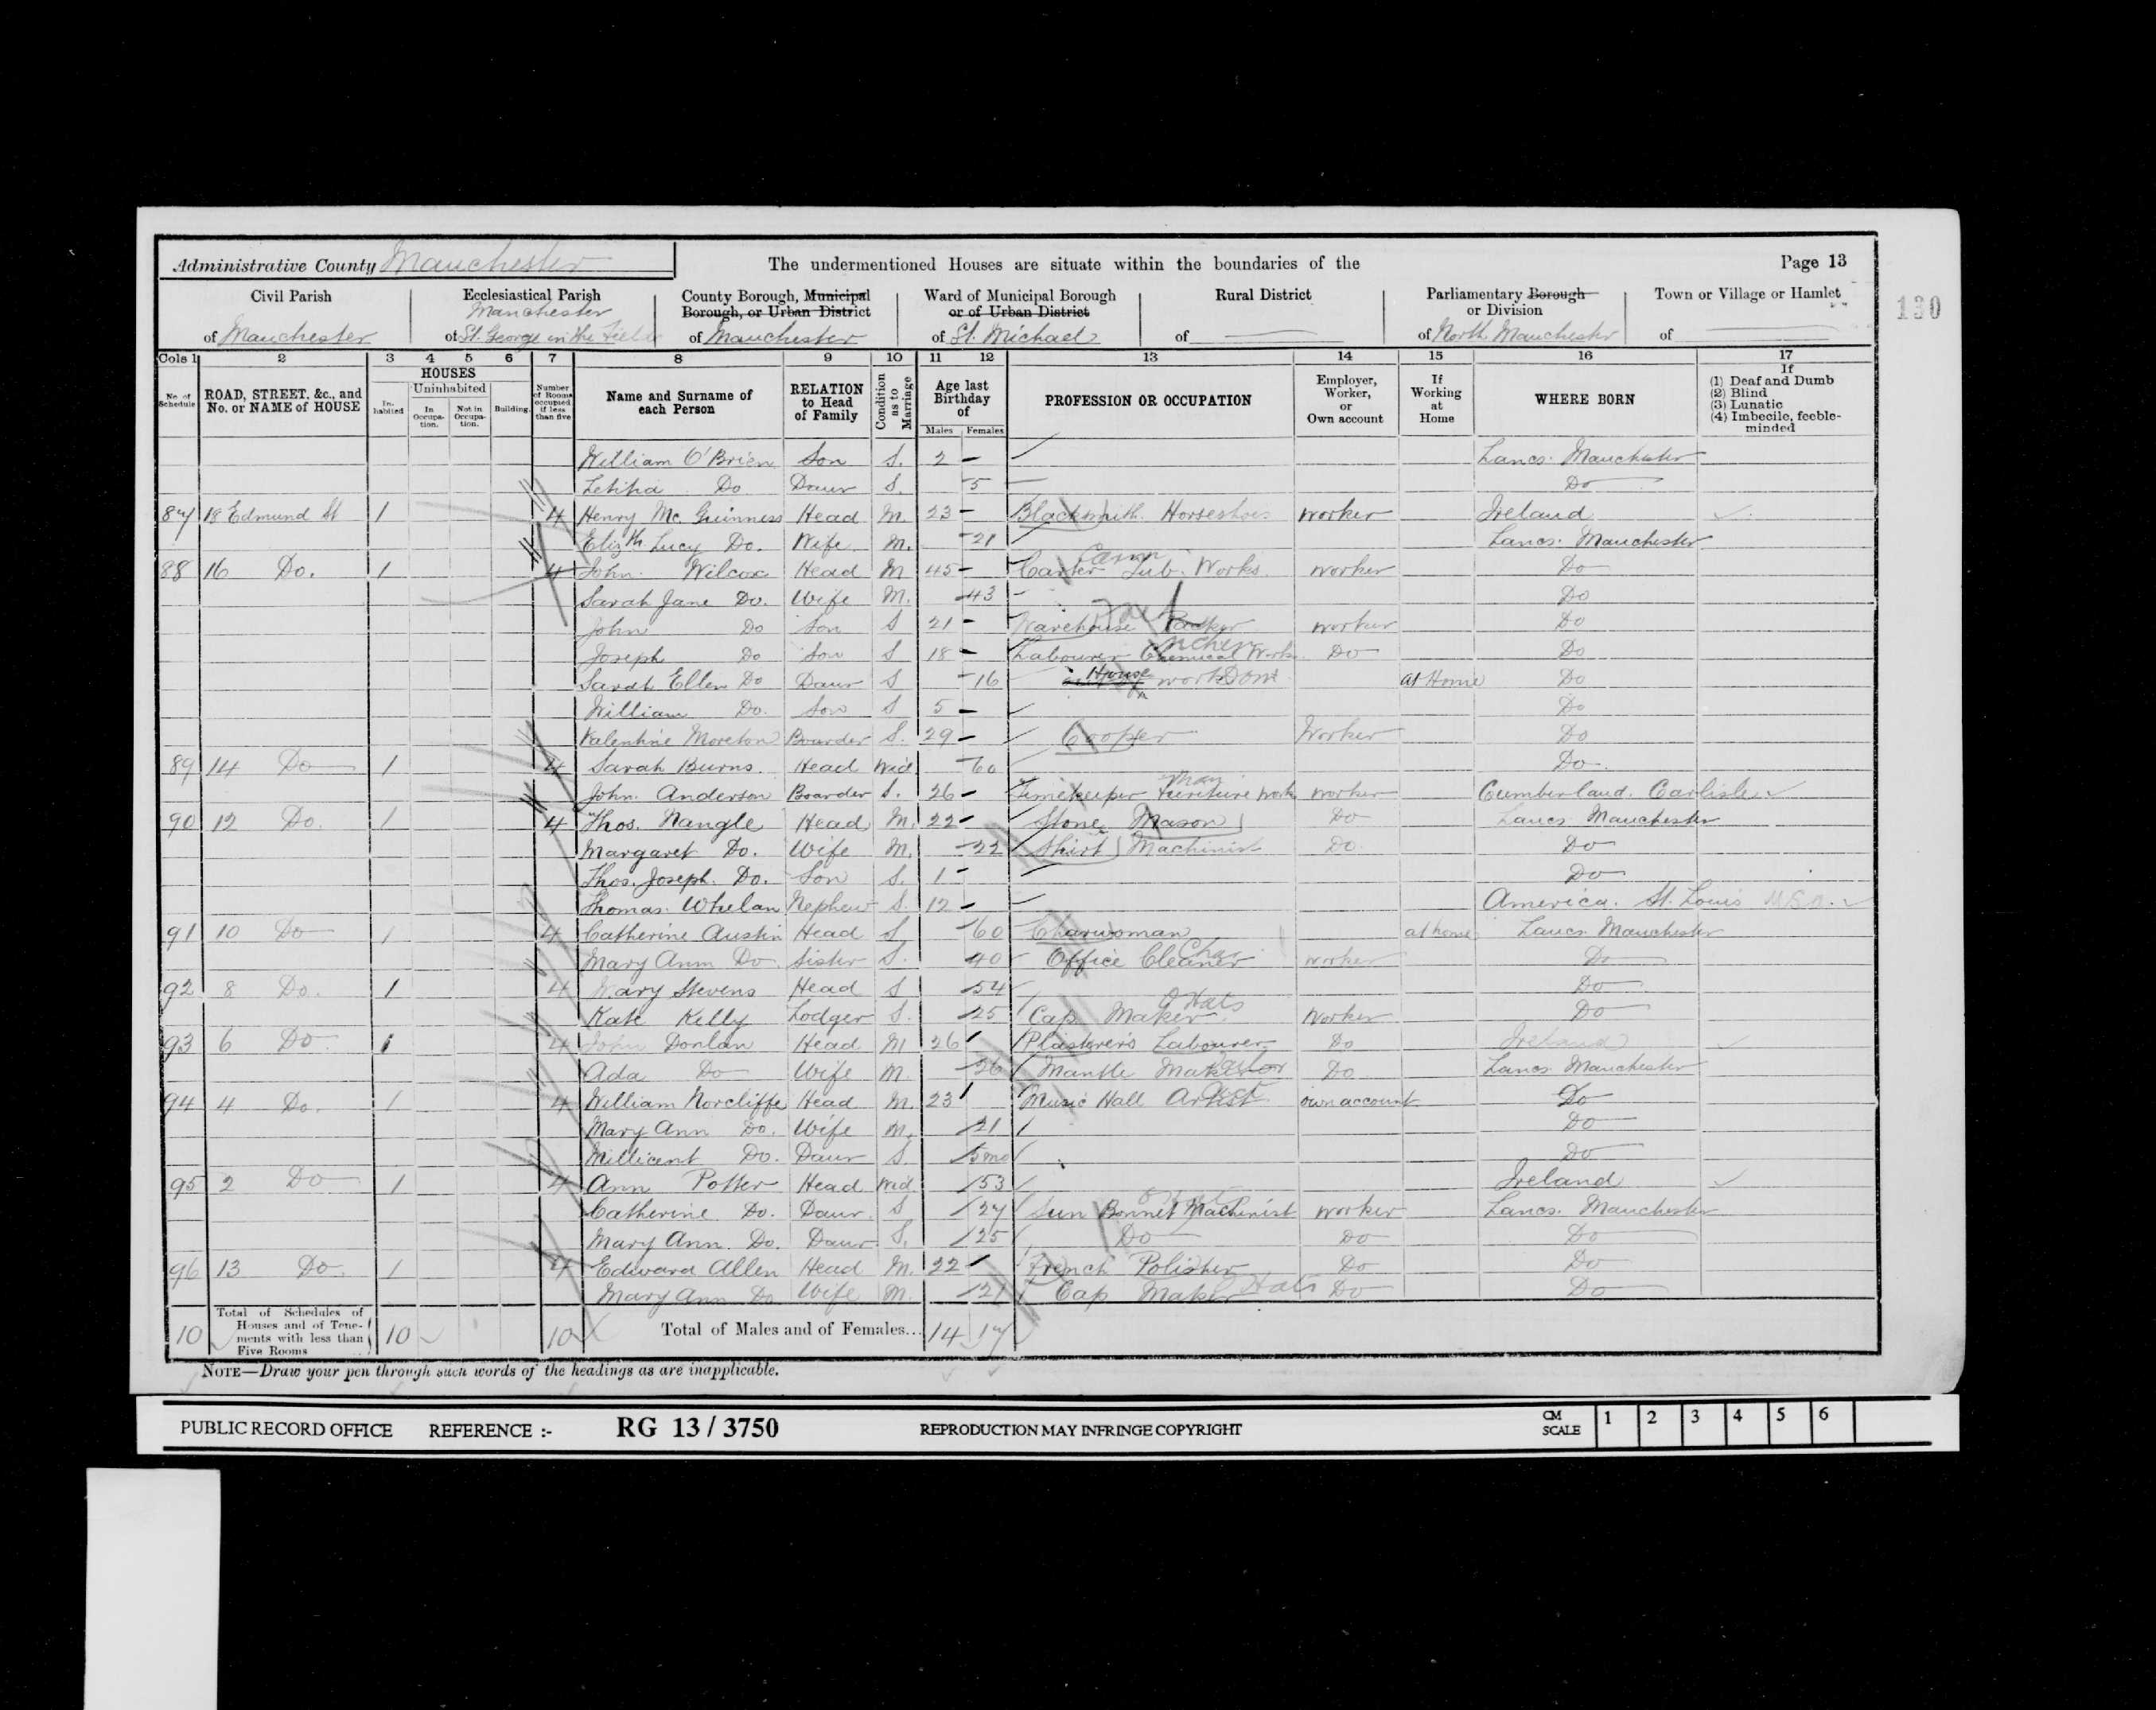 Administrative County Manchester
The undermentioned Houses are situate within the boundaries of the
Page 13
130
Civil Parish of Manchester
Ecclesiastical Parish of Manchester St. George in the Fields
County Borough, Municipal Borough, or Urban District of Manchester
Ward of Municipal Borough or of Urban District of St. Michael
Rural District of
Parliamentary Borough or Division of North Manchester
Town or Village or Hamlet of
Cols 1 2 3 4 5 6 7 8 9 10 11 12 13 14 15 16 17
No. of Schedule
ROAD, STREET, &c., and No. or NAME of HOUSE
HOUSES
Inhabited
Uninhabited
In Occupation.
Not in Occupation.
Building.
Number of Rooms occupied if less than five
Name and Surname of each Person
RELATION to Head of Family
Condition as to Marriage
Age last Birthday of
Males Females
PROFESSION OR OCCUPATION
Employer, Worker, or Own account
If Working at Home
WHERE BORN
If (1) Deaf and Dumb (2) Blind (3) Lunatic (4) Imbecile, feeble-minded
William O'Brien Son S. 2 Lancs. Manchester
Letitia Do Daur S. 5 Do
87 18 Edmund St 1 4 Henry Mc. Guinness Head M. 23 Blacksmith Horseshoes worker Ireland
Elizth Lucy Do. Wife M. 21 Lancs. Manchester
88 16 Do. 1 4 John Wilcox Head M 45 Carter Works. worker Do
Sarah Jane Do. Wife M. 43 Do
John Do Son S 21 Warehouse worker Do
Joseph Do Son S 18 Labourer Chemical Works Do Do
Sarah Ellen Do Daur S 16 House work Dom at Home Do
William Do. Son S 5 Do
Valentine Moreton Boarder S. 29 Cooper Worker Do
89 14 Do 1 4 Sarah Burns Head Wid 60 Do.
John Anderson Boarder S. 26 Timekeeper furniture works worker Cumberland. Carlisle
90 12 Do. 1 4 Thos. Nangle Head M. 22 Stone Mason Do Lancs Manchester
Margaret Do. Wife M. 22 Shirt Machinist Do. Do
Thos. Joseph. Do. Son S. 1 Do
Thomas Whelan Nephew S. 12 America. St. Louis U.S.A.
91 10 Do 1 4 Catherine Austin Head S 60 Charwoman at home Lancs Manchester
Mary Ann Do. Sister S. 40 Office Cleaner Char worker Do
92 8 Do. 1 4 Mary Stevens Head S 54 Do
Kate Kelly Lodger S. 25 Cap Maker Hats Worker Do
93 6 Do 1 4 John Donlan Head M 26 Plasterer's Labourer Do Ireland
Ada Do Wife M. 26 Mantle Maker Tailor Do Lancs Manchester
94 4 Do. 1 4 William Norcliffe Head M. 23 Music Hall Artist own account Do
Mary Ann Do. Wife M. 21 Do
Millicent Do. Daur S. 5 mo Do
95 2 Do 1 4 Ann Potter Head Wid 53 Ireland
Catherine Do. Daur. S 27 Sun Bonnet Machinist worker Lancs. Manchester
Mary Ann Do. Daur. S. 25 Do Do Do
96 13 Do. 1 4 Edward Allen Head M. 22 French Polisher Do Do
Mary Ann Do Wife M. 21 Cap Maker Hats Do Do
10 Total of Schedules of Houses and of Tenements with less than Five Rooms 10 10 Total of Males and of Females... 14 17
NOTE—Draw your pen through such words of the headings as are inapplicable.
PUBLIC RECORD OFFICE REFERENCE :- RG 13 / 3750 REPRODUCTION MAY INFRINGE COPYRIGHT CM SCALE 1 2 3 4 5 6